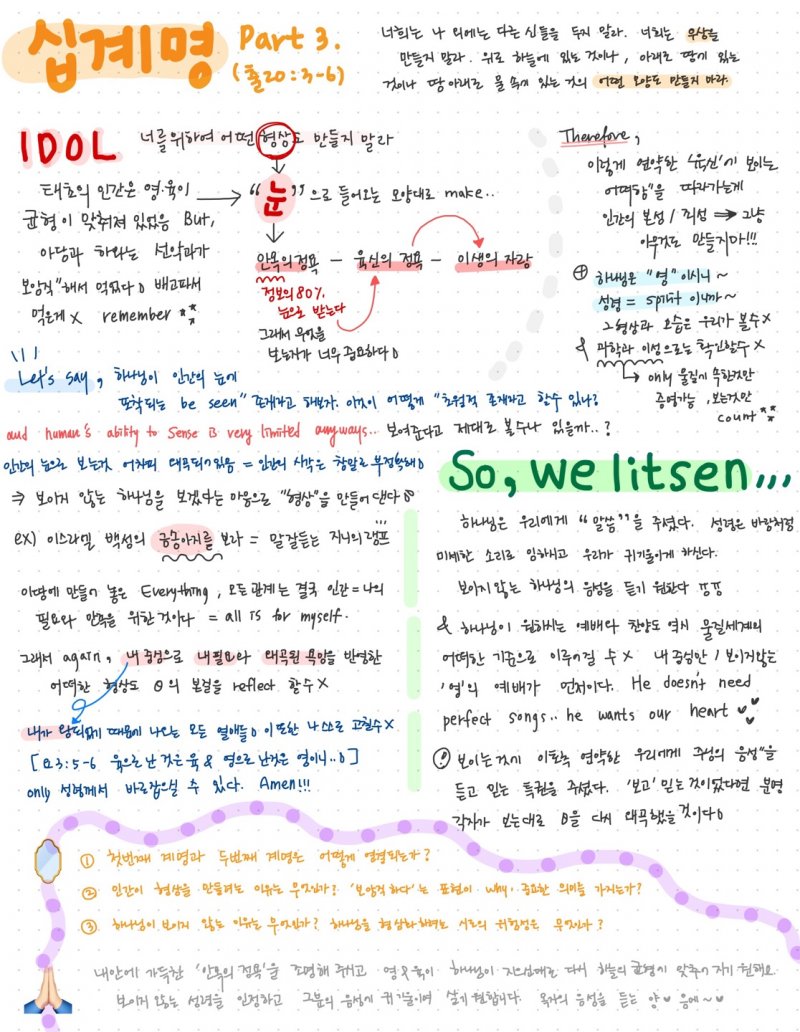 십계명 Part 3.
(출20:3-6)
너희는 나 외에는 다른 신들을 두지 말라. 너희는 우상을
만들지 말라. 위로 하늘에 있는 것이나, 아래로 땅에 있는
것이나 땅 아래로 물 속에 있는 것의 어떤 모양도 만들지 마라
IDOL 너를위하여 어떤 형상도 만들지 말라
태초의 인간은 영·육이
균형이 맞춰져 있었음 But,
아담과 하와는 선악과가
보암직"해서 먹었다! 배고파서
먹은게 X remember
"눈"으로 들어오는 모양대로 make..
안목의정욕 - 육신의 정욕 - 이생의 자랑
정보의 80%
눈으로 받는다
그래서 무엇을
보는지가 너무 중요하다!
Therefore,
이렇게 연약한 '육신'이 보이는
어떠함"을 따라가는게
인간의 본성 / 죄성 ⇒ 그냥
아무것도 만들지마!!!
⊕ 하나님은 "영"이시니~
성령 = spirit 이니까~
그형상과 모습은 우리가 볼수 X
& 과학과 이성으로는 확인할수 X
only 물질에 속한것만
증명가능, 보는것만
count
Let's say, 하나님이 인간의 눈에
포착되는 be seen" 존재라고 해보자. 이것이 어떻게 "초월적 존재라고 할수 있나?
and human's ability to sense is very limited anyways.. 보여준다고 제대로 볼수나 있을까..?
인간의 눈으로 보는것 어차피 왜곡되어있음 = 인간의 시각은 정말로 부정확해!
⇒ 보이지 않는 하나님을 보겠다는 마음으로 "형상"을 만들어 낸다
ex) 이스라엘 백성의 금송아지를 보라 = 말잘듣는 지니의 램프
이땅에 만들어 놓은 Everything, 모든관계는 결국 인간=나의
필요와 만족을 위한 것이다 = all is for myself.
그래서 again, 내 중심으로 내필요와 왜곡된 욕망을 반영한
어떠한 형상도 θ의 본질을 reflect 할수 X
내가 왕되었기 때문에 나오는 모든 열매들! 이 또한 나 스스로 고칠수 X
[요3:5-6 육으로 난 것은 육 & 영으로 난것은 영이니..!]
only 성령께서 바로잡으실 수 있다. Amen!!!
So, we litsen...
하나님은 우리에게 "말씀"을 주셨다. 성령은 바람처럼
미세한 소리로 임하시고 우리가 귀기울이게 하신다.
보이지않는 하나님의 음성을 듣기 원한다 ㅠㅠ
& 하나님이 원하시는 예배와 찬양도 역시 물질세계의
어떠한 기준으로 이루어질 수 X 내 중심만 / 보이지않는
'영'의 예배가 먼저이다. He doesn't need
perfect songs.. he wants our heart
! 보이는것에 이토록 연약한 우리에게 주님의 음성"을
듣고 믿는 특권을 주셨다. '보고' 믿는 것이었다면 분명
각자가 보는대로 θ을 다시 왜곡했을 것이다!
① 첫번째 계명과 두번째 계명은 어떻게 연결되는가?
② 인간이 형상을 만들려는 이유는 무엇인가? '보암직하다'는 표현이 why, 중요한 의미를 가지는가?
③ 하나님이 보이지 않는 이유는 무엇인가? 하나님을 형상화하려는 시도의 위험성은 무엇인가?
내안에 가득한 '안목의 정욕'을 조명해 주시고 영&육이 하나님이 지으신대로 다시 하늘의 균형에 맞추어지기 원해요
보이지 않는 성령을 인정하고 그분의 음성에 귀 기울이며 살기 원합니다. 목자의 음성을 듣는 양